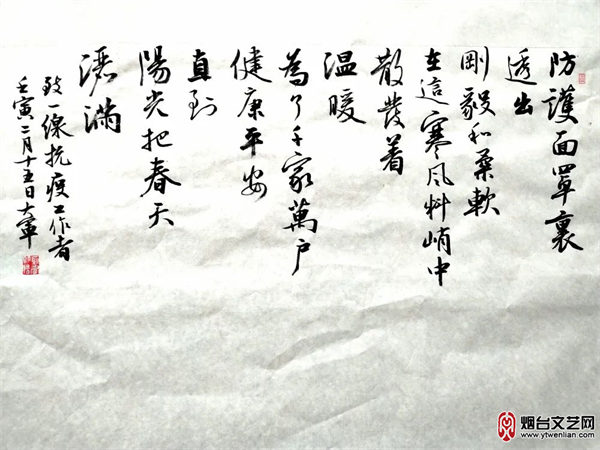 防護面罩裏
透出
剛毅和柔軟
在這寒风料峭中
散發着
温暖
為了千家萬户
健康平安
直到
陽光把春天
洒满
致一線抗疫工作者
壬寅二月十五日大軍
烟台文艺网
www.ytwenlian.com